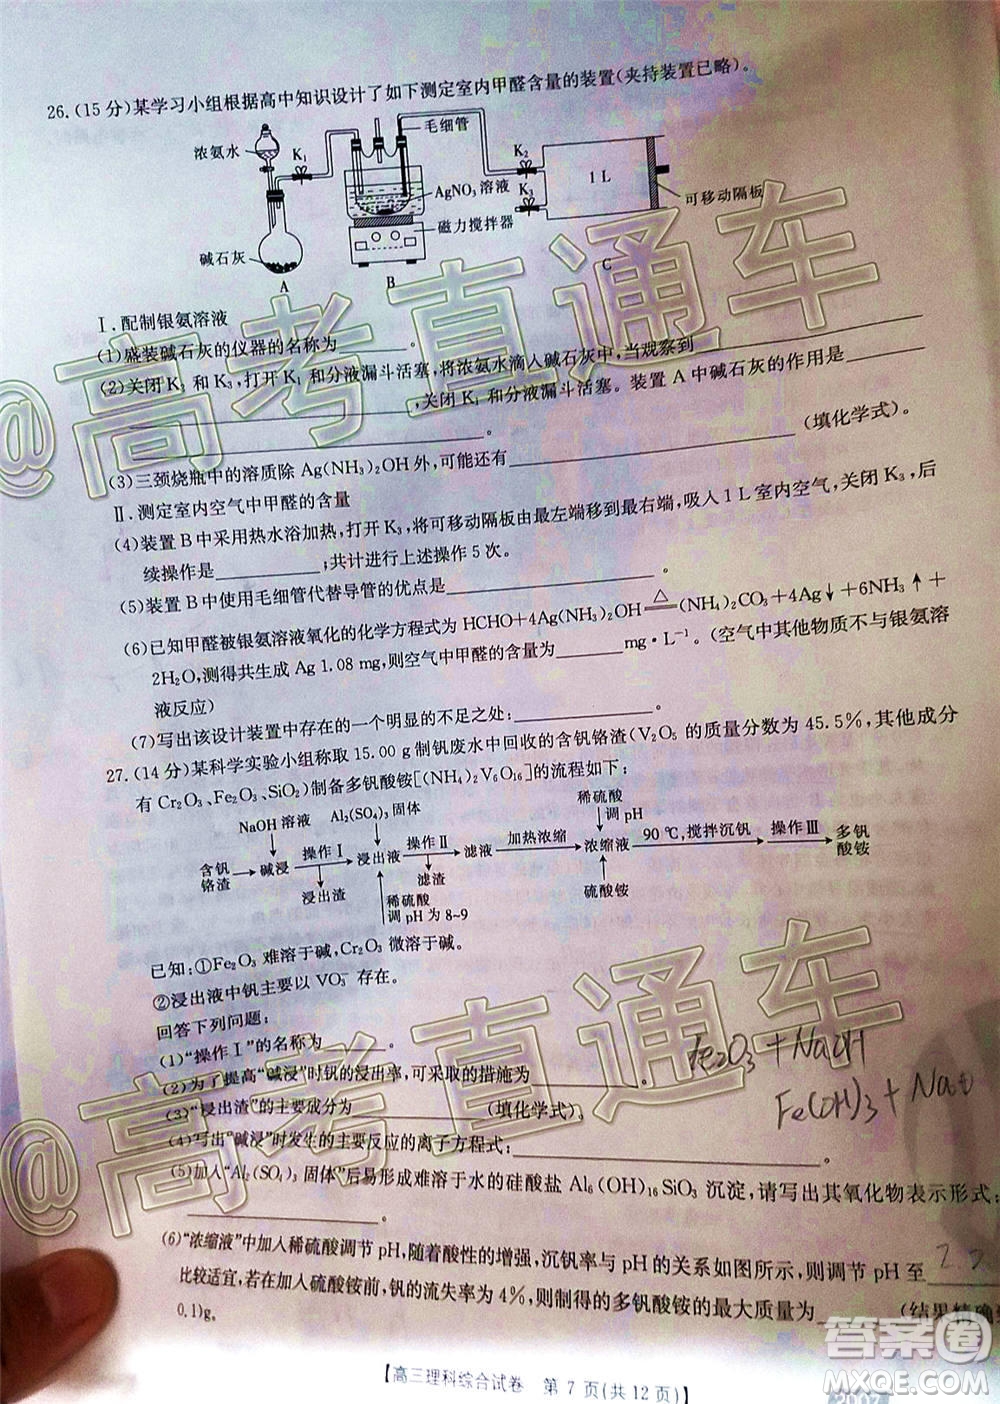 26.(15 分)某学习小组根据高中知识设计了如下测定室内甲醛含量的装置(夹持装置已略)。
浓氨水
K₁
毛细管
AgNO₃ 溶液
磁力搅拌器
碱石灰
A
B
K₂
K₃
1 L
可移动隔板
C
Ⅰ.配制银氨溶液
(1)盛装碱石灰的仪器的名称为________。
(2)关闭 K₂ 和 K₃,打开 K₁ 和分液漏斗活塞,将浓氨水滴入碱石灰中,当观察到________
________,关闭 K₁ 和分液漏斗活塞。装置 A 中碱石灰的作用是________
________。
(3)三颈烧瓶中的溶质除 Ag(NH₃)₂OH 外,可能还有________(填化学式)。
Ⅱ.测定室内空气中甲醛的含量
(4)装置 B 中采用热水浴加热,打开 K₃,将可移动隔板由最左端移到最右端,吸入 1 L 室内空气,关闭 K₃,后
续操作是________;共计进行上述操作 5 次。
(5)装置 B 中使用毛细管代替导管的优点是________。
(6)已知甲醛被银氨溶液氧化的化学方程式为 HCHO+4Ag(NH₃)₂OH══△══(NH₄)₂CO₃+4Ag↓+6NH₃↑+
2H₂O,测得共生成 Ag 1.08 mg,则空气中甲醛的含量为________mg·L⁻¹。(空气中其他物质不与银氨溶
液反应)
(7)写出该设计装置中存在的一个明显的不足之处:________。
27.(14 分)某科学实验小组称取 15.00 g 制钒废水中回收的含钒铬渣(V₂O₅ 的质量分数为 45.5%,其他成分
有 Cr₂O₃、Fe₂O₃、SiO₂)制备多钒酸铵[(NH₄)₂V₆O₁₆]的流程如下:
NaOH 溶液
Al₂(SO₄)₃ 固体
稀硫酸
调 pH
含钒
铬渣
碱浸
操作Ⅰ
浸出液
操作Ⅱ
滤液
加热浓缩
浓缩液
90 ℃,搅拌沉钒
操作Ⅲ
多钒
酸铵
浸出渣
滤渣
稀硫酸
调 pH 为 8~9
硫酸铵
已知:①Fe₂O₃ 难溶于碱,Cr₂O₃ 微溶于碱。
②浸出液中钒主要以 VO₃⁻ 存在。
回答下列问题:
(1)“操作Ⅰ”的名称为________。
(2)为了提高“碱浸”时钒的浸出率,可采取的措施为________。
(3)“浸出渣”的主要成分为________(填化学式)。
(4)写出“碱浸”时发生的主要反应的离子方程式:________。
(5)加入“Al₂(SO₄)₃ 固体”后易形成难溶于水的硅酸盐 Al₆(OH)₁₆SiO₃ 沉淀,请写出其氧化物表示形式:
________。
(6)“浓缩液”中加入稀硫酸调节 pH,随着酸性的增强,沉钒率与 pH 的关系如图所示,则调节 pH 至________
比较适宜,若在加入硫酸铵前,钒的流失率为 4%,则制得的多钒酸铵的最大质量为________(结果精确到
0.1)g。
Fe₂O₃ + NaOH
Fe(OH)₃ + Na
【高三理科综合试卷 第 7 页(共 12 页)】
@高考直通车
@高考直通车
答案圈